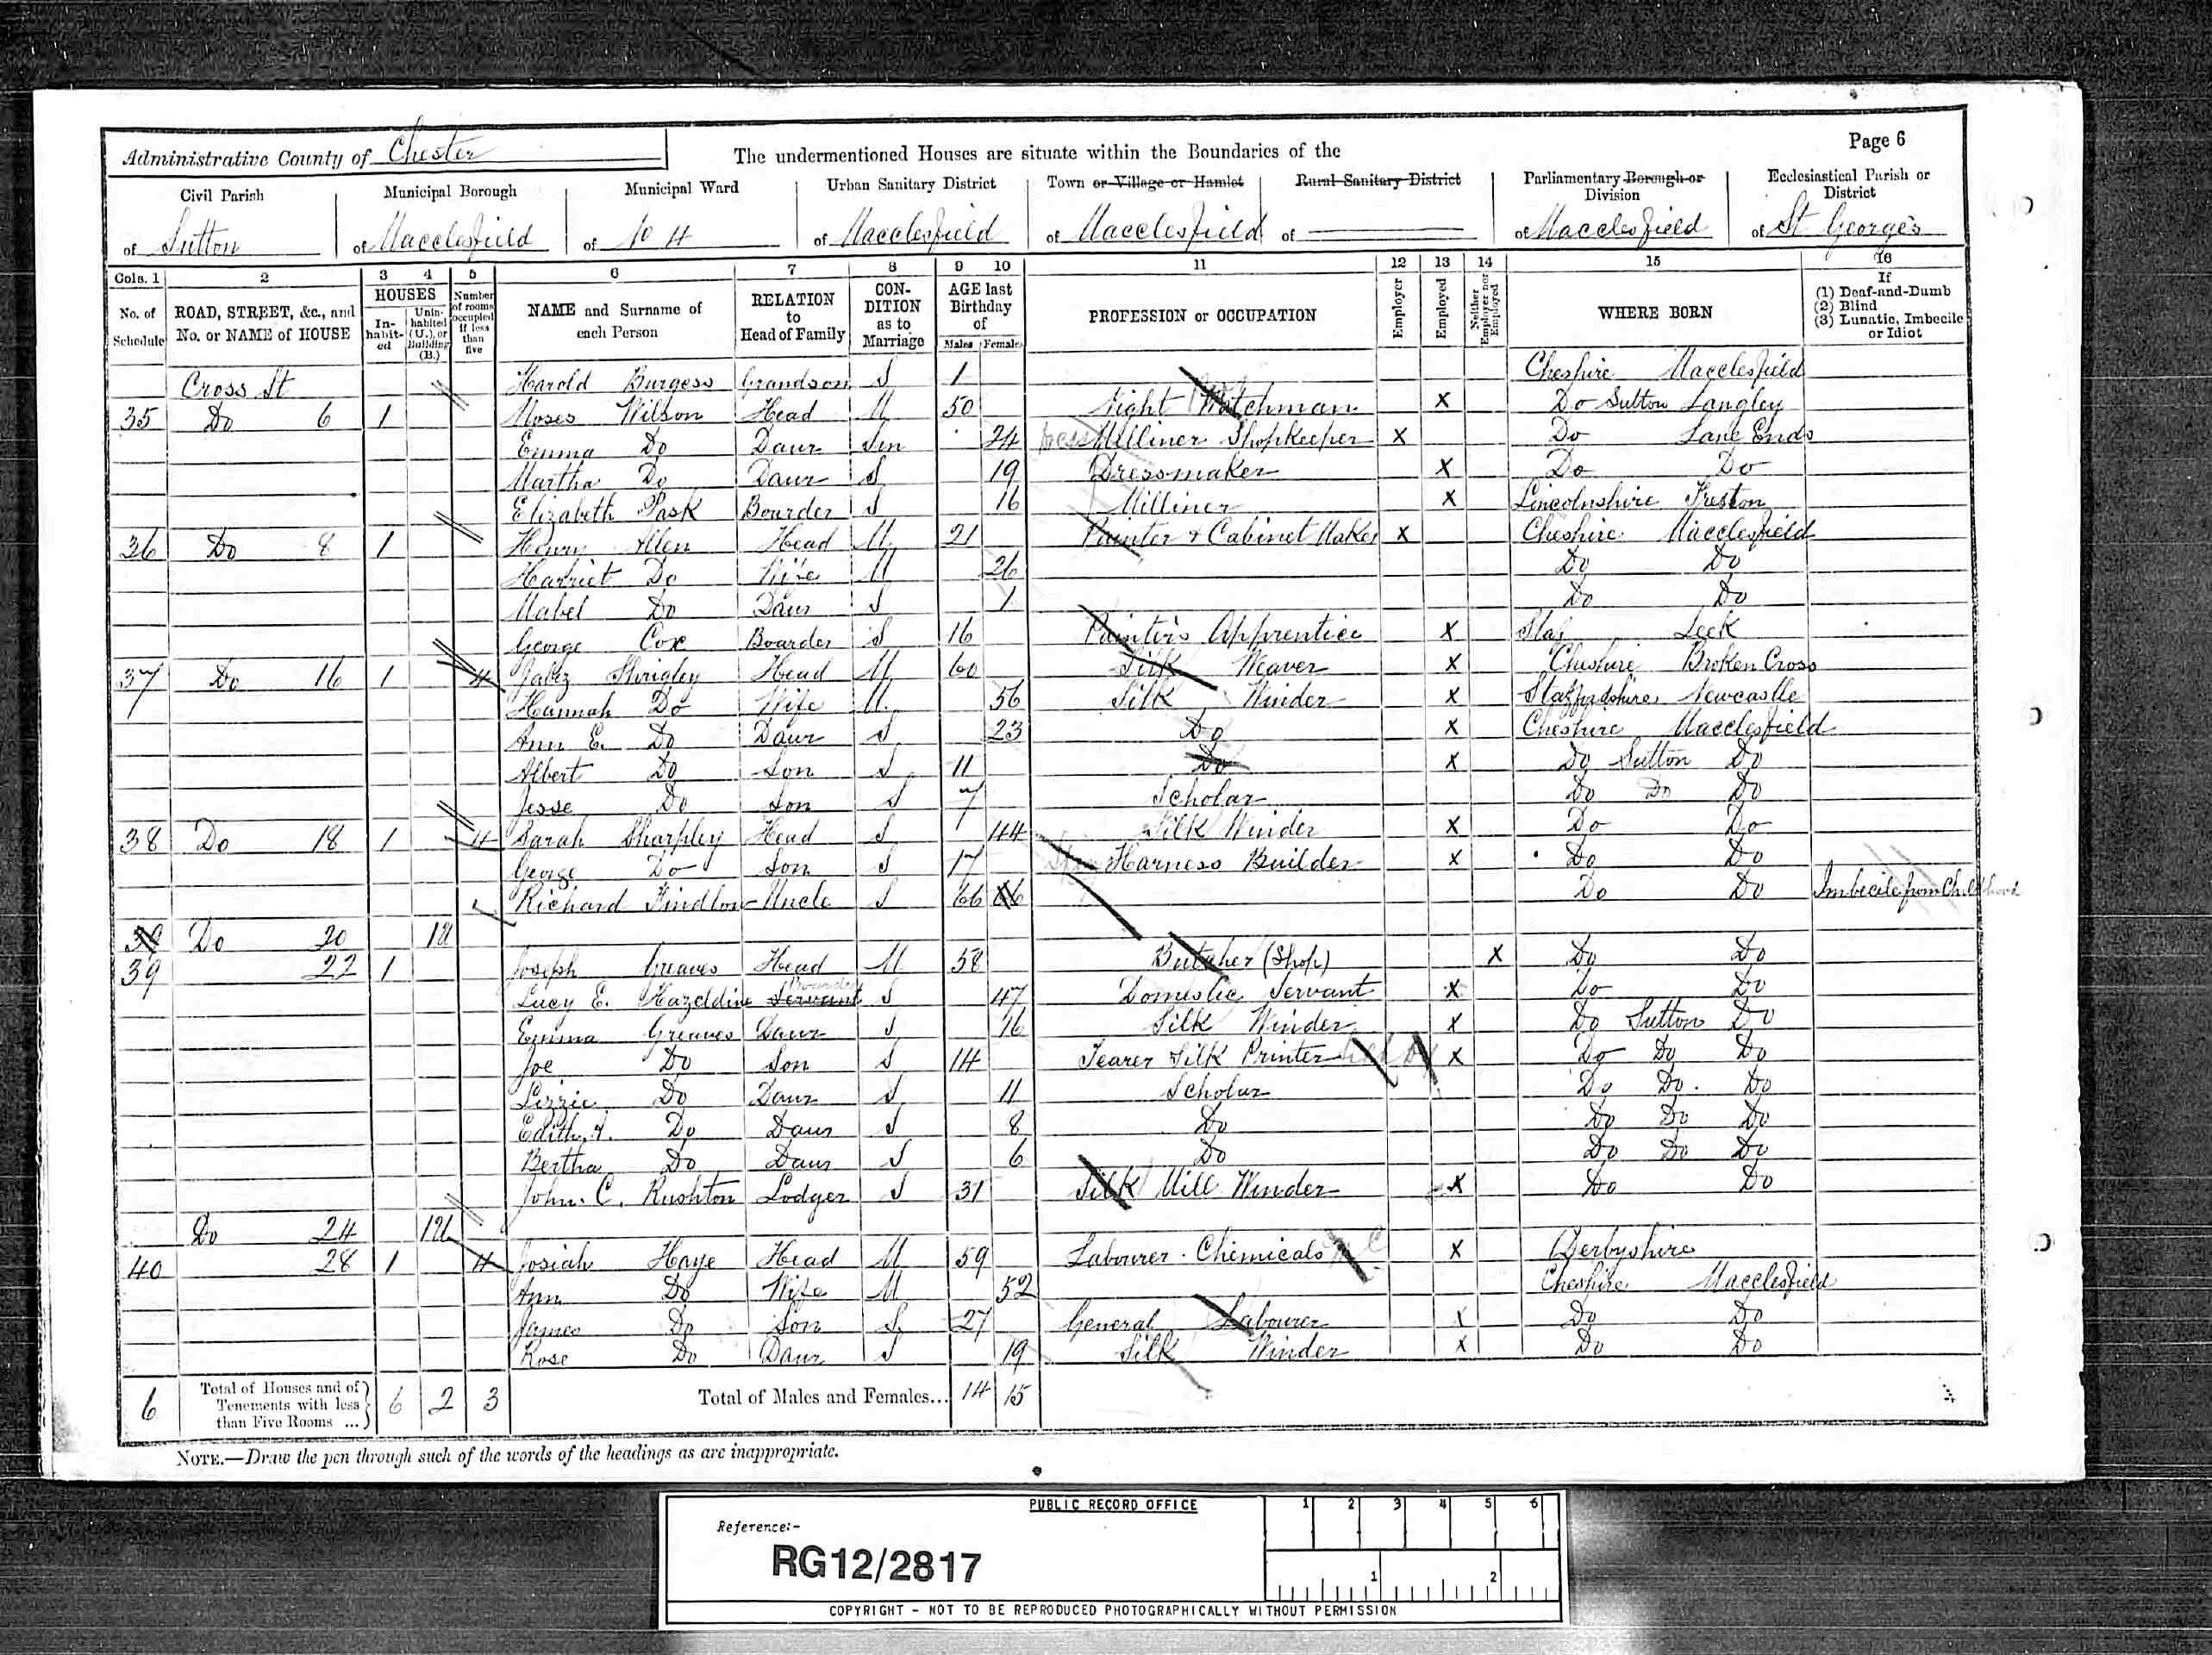 Administrative County of Chester
The undermentioned Houses are situate within the Boundaries of the
Page 6
Civil Parish of Sutton
Municipal Borough of Macclesfield
Municipal Ward of No 4
Urban Sanitary District of Macclesfield
Town or Village or Hamlet of Macclesfield
Rural Sanitary District of
Parliamentary Borough or Division of Macclesfield
Ecclesiastical Parish or District of St George's
Cols. 1 2 3 4 5 6 7 8 9 10 11 12 13 14 15 16
No. of Schedule
ROAD, STREET, &c., and No. or NAME of HOUSE
HOUSES
Inhabited
Uninhabited (U.), or Building (B.)
Number of rooms occupied if less than five
NAME and Surname of each Person
RELATION to Head of Family
CONDITION as to Marriage
AGE last Birthday of
Males Females
PROFESSION or OCCUPATION
Employer
Employed
Neither Employer nor Employed
WHERE BORN
If
(1) Deaf-and-Dumb
(2) Blind
(3) Lunatic, Imbecile or Idiot
Cross St Harold Burgess Grandson S 1 Cheshire Macclesfield
35 Do 6 1 Moses Wilson Head M 50 Night Watchman X Do Sutton Langley
Emma Do Daur Sin 24 Milliner Shopkeeper X Do Lane Ends
Martha Do Daur S 19 Dressmaker X Do Do
Elizabeth Pask Bourder S 16 Milliner X Lincolnshire Freston
36 Do 8 1 Henry Allen Head M 21 Painter & Cabinet Maker X Cheshire Macclesfield
Harriet Do Wife M 26 Do Do
Mabel Do Daur S 1 Do Do
George Cox Boarder S 16 Painter's Apprentice X Staf Leek
37 Do 16 1 4 Jabez Shrigley Head M 60 Silk Weaver X Cheshire Broken Cross
Hannah Do Wife M 56 Silk Winder X Staffordshire Newcastle
Ann E. Do Daur S 23 Do X Cheshire Macclesfield
Albert Do Son S 11 Do X Do Sutton Do
Jesse Do Son S 7 Scholar Do Do Do
38 Do 18 1 4 Sarah Sharpley Head S 44 Silk Winder X Do Do
George Do Son S 17 Harness Builder X Do Do
Richard Findlow Uncle S 66 66 Do Do Imbecile from Childhood
39 Do 20 1U
39 22 1 Joseph Greaves Head M 58 Butcher (Shop) X Do Do
Lucy E. Hazeldine Servant Boarder S 47 Domestic Servant X Do Do
Emma Greaves Daur S 16 Silk Winder X Do Sutton Do
Joe Do Son S 14 Tearer Silk Printer X Do Do Do
Lizzie Do Daur S 11 Scholar Do Do Do
Edith A. Do Daur S 8 Do Do Do Do
Bertha Do Daur S 6 Do Do Do Do
John. C. Rushton Lodger S 31 Silk Mill Winder X Do Do
Do 24 1U
40 28 1 4 Josiah Haye Head M 59 Labourer - Chemicals X Derbyshire
Ann Do Wife M 52 Cheshire Macclesfield
James Do Son S 27 General Labourer X Do Do
Rose Do Daur S 19 Silk Winder X Do Do
6 Total of Houses and of Tenements with less than Five Rooms ... 6 2 3 Total of Males and Females... 14 15
NOTE.—Draw the pen through such of the words of the headings as are inappropriate.
PUBLIC RECORD OFFICE
1 2 3 4 5 6
Reference:-
RG12/2817
1 2
COPYRIGHT - NOT TO BE REPRODUCED PHOTOGRAPHICALLY WITHOUT PERMISSION